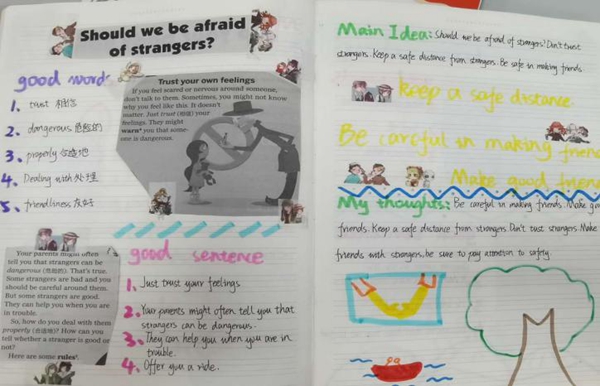 Should we be afraid
of strangers?
good words
1. trust 相信
2. dangerous 危险的
3. properly 合适地
4. Dealing with 处理
5. friendliness 友好
Trust your own feelings
If you feel scared or nervous around someone,
don't talk to them. Sometimes, you might not know
why you feel like this. It doesn't
matter. Just trust (相信) your
feelings. They might
warn⁸ you that some-
one is dangerous.
Your parents might often
tell you that strangers can be
dangerous (危险的). That's true.
Some strangers are bad and you
should be careful around them.
But some strangers are good.
They can help you when you are
in trouble.
So, how do you deal with them
properly (合适地)? How can you
tell whether a stranger is good or
not?
Here are some rules
good sentence
1. Just trust your feelings
2. Your parents might often tell you that
strangers can be dangerous.
3. They can help you when you are in
trouble.
4. Offer you a ride.
Main Idea: Should we be afraid of strangers? Don't trust
strangers. Keep a safe distance from strangers. Be safe in making friends.
keep a safe distance.
Be careful in making frien
Make good frien
My thoughts: Be careful in making friends. Make
friends. Keep a safe distance from strangers. Don't trust strangers. Make
friends with strangers, be sure to pay attention to safety.